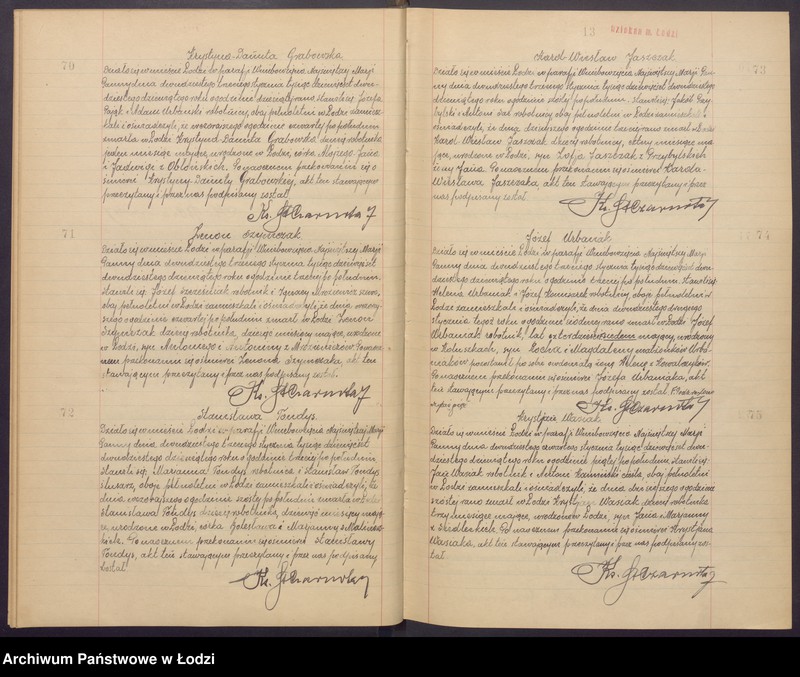 70
Krystyna-Danuta Grabowska
Działo się w mieście Łodzi w parafji Wniebowzięcia Najświętszej Marji
Panny dnia dwudziestego trzeciego stycznia tysiąc dziewięćset dwu-
dziestego dziewiątego roku o godzinie dziewiątej rano, stawili się Józef
i Adam robotnicy, obaj pełnoletni w Łodzi zamiesz-
kali i oświadczyli, że wczoraj o godzinie czwartej po południu
zmarła w Łodzi Krystyna Danuta Grabowska dziecię robotnika,
jeden miesiąc mająca, urodzona w Łodzi, córka Alojzego
i Jadwigi z Po naocznem przekonaniu się o
śmierci Krystyny Danuty Grabowskiej, akt ten stawającym
przeczytany i przez nas podpisany został.
Ks. Czarnota J
71
Zenon Szymczak
Działo się w mieście Łodzi w parafji Wniebowzięcia Najświętszej Marji
Panny dnia dwudziestego trzeciego stycznia tysiąc dziewięćset
dwudziestego dziewiątego roku o godzinie trzeciej po południu.
Stawili się Józef robotnik i Ignacy szewc,
obaj pełnoletni w Łodzi zamieszkali i oświadczyli, że dnia wczoraj-
szego o godzinie czwartej po południu zmarł w Łodzi Zenon
Szymczak dziecię robotnika, dziewięć miesięcy mające, urodzone
w Łodzi, syn Antoniego i Antoniny z Po nao-
cznem przekonaniu się o śmierci Zenona Szymczaka, akt ten
stawającym przeczytany i przez nas podpisany został.
Ks. Czarnota J
72
Stanisława Tondys.
Działo się w mieście Łodzi w parafji Wniebowzięcia Najświętszej Marji
Panny dnia dwudziestego trzeciego stycznia tysiąc dziewięćset
dwudziestego dziewiątego roku o godzinie trzeciej po południu
stawili się Marjanna Tondys robotnica i Stanisław Tondys
ślusarz, oboje pełnoletni w Łodzi zamieszkali i oświadczyli, że
dnia wczorajszego o godzinie szóstej po południu zmarła w Łodzi
Stanisława Tondys dziecię robotnika, dziewięć miesięcy mają-
ca, urodzona w Łodzi, córka Bolesława i Marjanny z
Po naocznem przekonaniu się o śmierci Stanisławy
Tondys, akt ten stawającym przeczytany i przez nas podpisany
został.
Ks. Czarnota J
13
73
Karol Wiesław Jaszczak
Działo się w mieście Łodzi w parafji Wniebowzięcia Najświętszej Marji Pan-
ny dnia dwudziestego trzeciego stycznia tysiąc dziewięćset dwudziestego
dziewiątego roku o godzinie po południu. Stawili się: Jakób
i Antoni robotnicy obaj pełnoletni w Łodzi zamieszkali i
oświadczyli, że dnia dzisiejszego o godzinie rano zmarł w Łodzi
Karol Wiesław Jaszczak dziecię robotnicy, cztery miesiące ma-
jące, urodzone w Łodzi, syn Zofji Jaszczak z Przybylskich
i Jana. Po naocznem przekonaniu się o śmierci Karola-
Wiesława Jaszczaka, akt ten stawającym przeczytany i przez
nas podpisany został.
Ks. Czarnota J
74
Józef Urbaniak
Działo się w mieście Łodzi w parafji Wniebowzięcia Najświętszej Marji
Panny dnia dwudziestego trzeciego stycznia tysiąc dziewięćset dwu-
dziestego dziewiątego roku o godzinie trzeciej po południu. Stawili się
Helena Urbaniak i Józef robotnicy, oboje pełnoletni w
Łodzi zamieszkali i oświadczyli, że dnia dwudziestego drugiego
stycznia tegoż roku o godzinie siódmej rano zmarł w Łodzi Józef
Urbaniak robotnik, lat czterdzieści siedem mający, urodzony
w syn Rocha i Magdaleny małżonków Urba-
niaków pozostawił po sobie owdowiałą żonę Helenę z Kowalczyków.
Po naocznem przekonaniu się o śmierci Józefa Urbaniaka, akt
ten stawającym przeczytany i przez nas podpisany został.
Ks. Czarnota J
75
Krystyna Wasiak
Działo się w mieście Łodzi w parafji Wniebowzięcia Najświętszej Marji
Panny dnia dwudziestego czwartego stycznia tysiąc dziewięćset dwu-
dziestego dziewiątego roku o godzinie piątej po południu, stawili się:
Jan Wasiak robotnik i Antoni Kamiński cieśla, obaj pełnoletni
w Łodzi zamieszkali i oświadczyli, że dnia dzisiejszego o godzinie
szóstej rano zmarł w Łodzi Wasiak dziecię robotnika
trzy miesiące mające, urodzone w Łodzi, syn Jana i Marjanny
z Po naocznem przekonaniu się o śmierci
Wasiaka, akt ten stawającym przeczytany i przez nas podpisany zo-
stał.
Ks. Czarnota J
Archiwum Państwowe w Łodzi